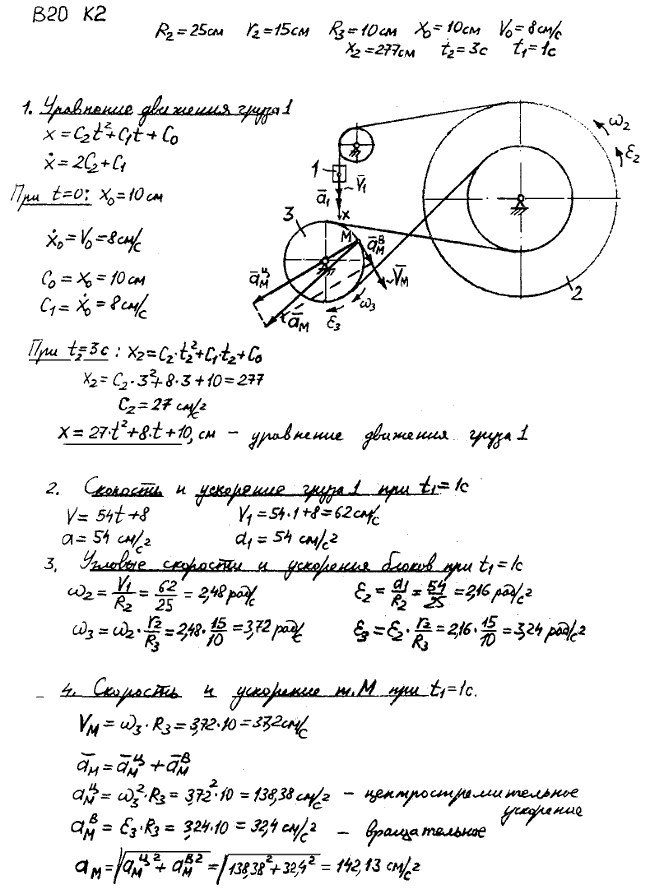 В20 К2
R₂=25см r₂=15см R₃=10см X₀=10см V₀=8см/с
X₂=277см t₂=3с t₁=1с
1. Уравнение движения груза 1
x=C₂t²+C₁t+C₀
ẋ=2C₂+C₁
При t=0: X₀=10см
ẋ₀=V₀=8см/с
C₀=X₀=10см
C₁=ẋ₀=8см/с
ω₂
ε₂
1
V̄₁
ā₁
x
3
M
ā_M^в
ā_M^ц
V̄_M
ā_M
ω₃
ε₃
2
При t₂=3с: X₂=C₂·t₂²+C₁·t₂+C₀
X₂=C₂·3²+8·3+10=277
C₂=27см/с²
X=27·t²+8·t+10, см – уравнение движения груза 1
2. Скорость и ускорение груза 1 при t₁=1с
V=54t+8 V₁=54·1+8=62см/с
a=54 см/с² a₁=54 см/с²
3. Угловые скорости и ускорения блоков при t₁=1с
ω₂=V₁/R₂=62/25=2,48 рад/с ε₂=a₁/R₂=54/25=2,16 рад/с²
ω₃=ω₂·r₂/R₃=2,48·15/10=3,72 рад/с ε₃=ε₂·r₂/R₃=2,16·15/10=3,24 рад/с²
4. Скорость и ускорение т.М при t₁=1с.
V_M=ω₃·R₃=3,72·10=37,2см/с
ā_M=ā_M^ц+ā_M^в
a_M^ц=ω₃²·R₃=3,72²·10=138,38 см/с² – центростремительное
ускорение
a_M^в=ε₃·R₃=3,24·10=32,4 см/с² – вращательное
a_M=√(a_M^ц²+a_M^в²)=√(138,38²+32,4²)=142,13 см/с²